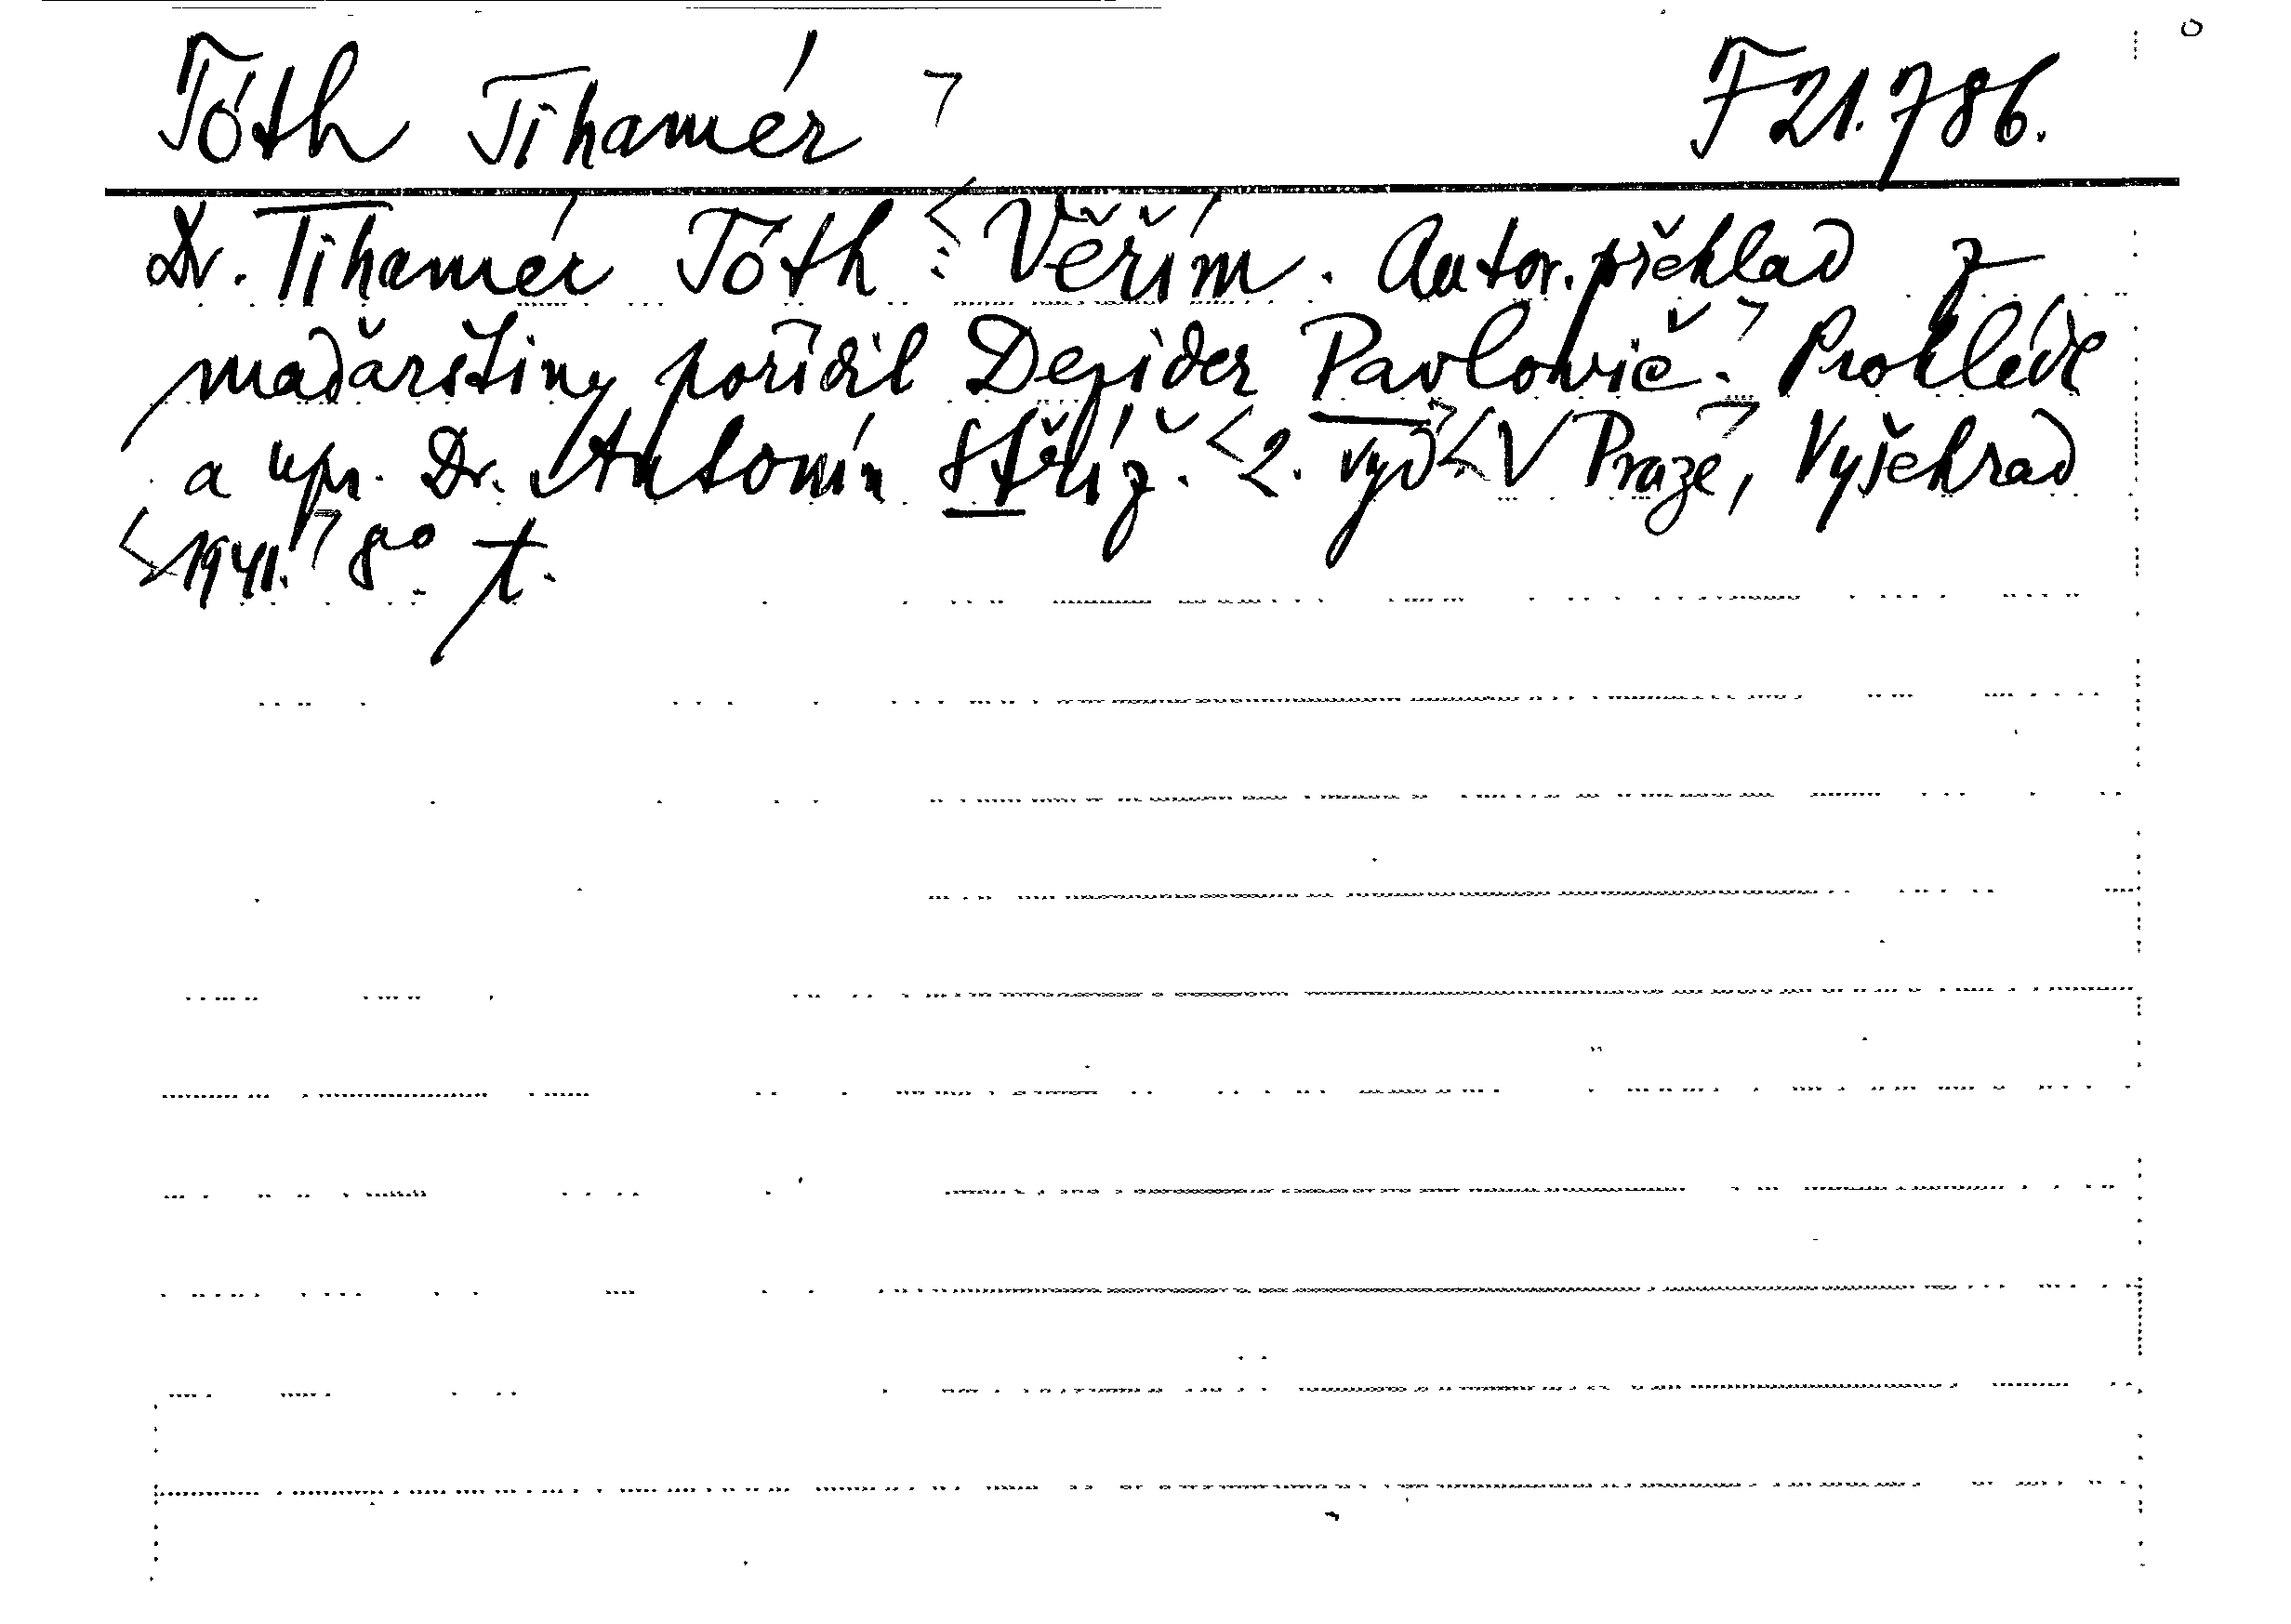 Tóth Tihamér F 21.786.
Dr. Tihamér Tóth: Věřím. Autor. překlad z
maďarštiny pořídil Dezider Pavlovič. Prohlédl
a upr. Dr. Antonín Stříž. 2. vyd. V Praze, Vyšehrad
1941. 8° t.